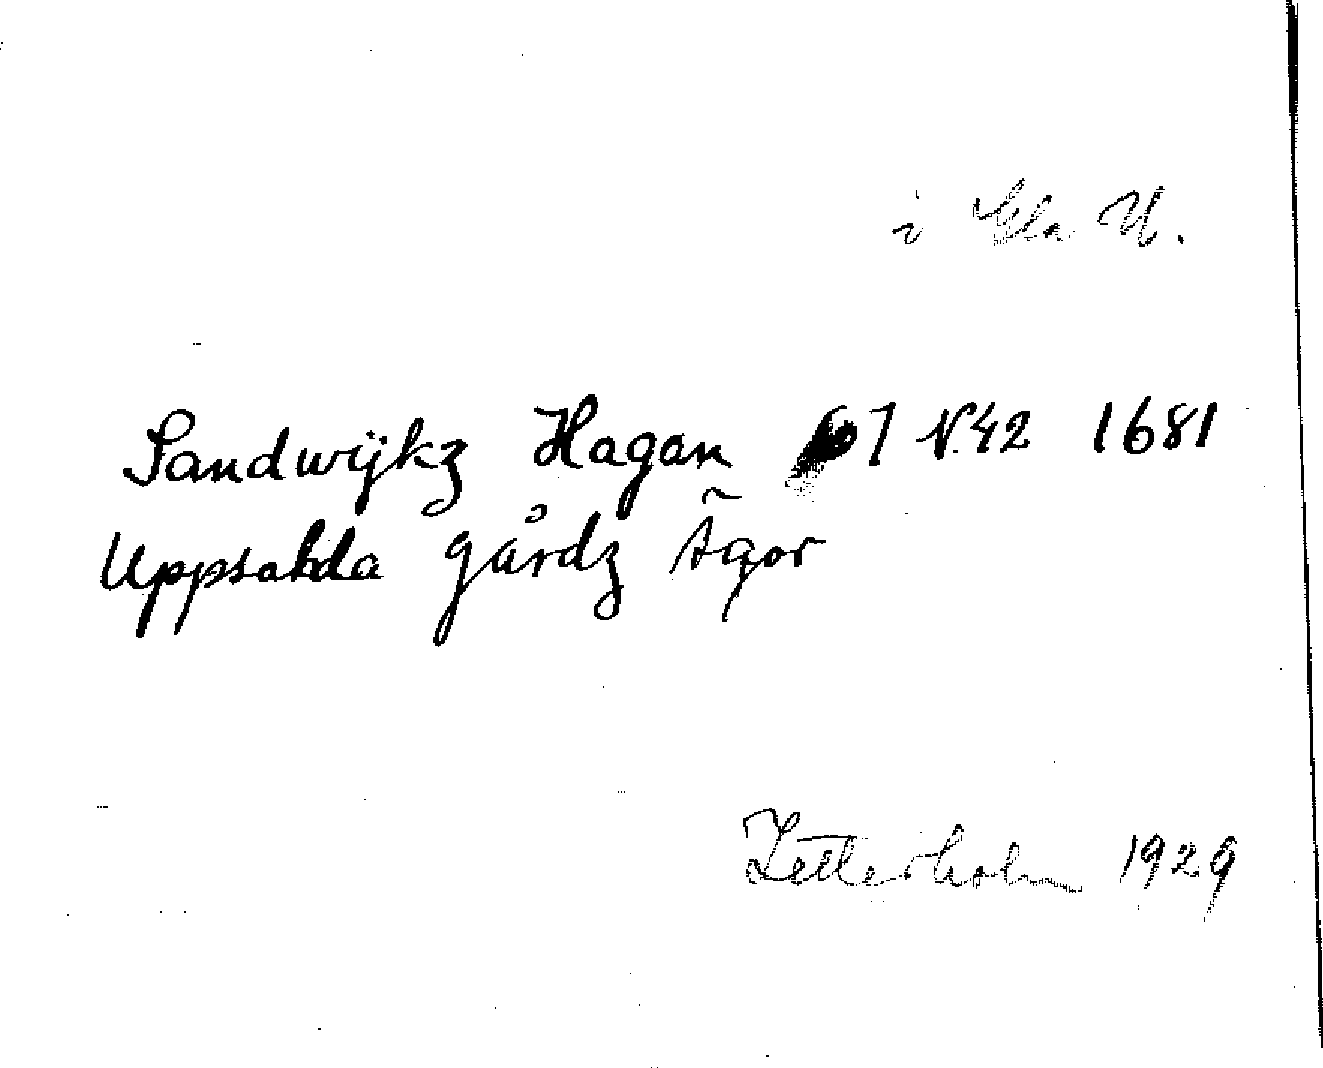 i Gla U.
Sandwijkz Hagan 67 N.42 1681
Uppsahla gårdz Ägor
Zetterholm 1929